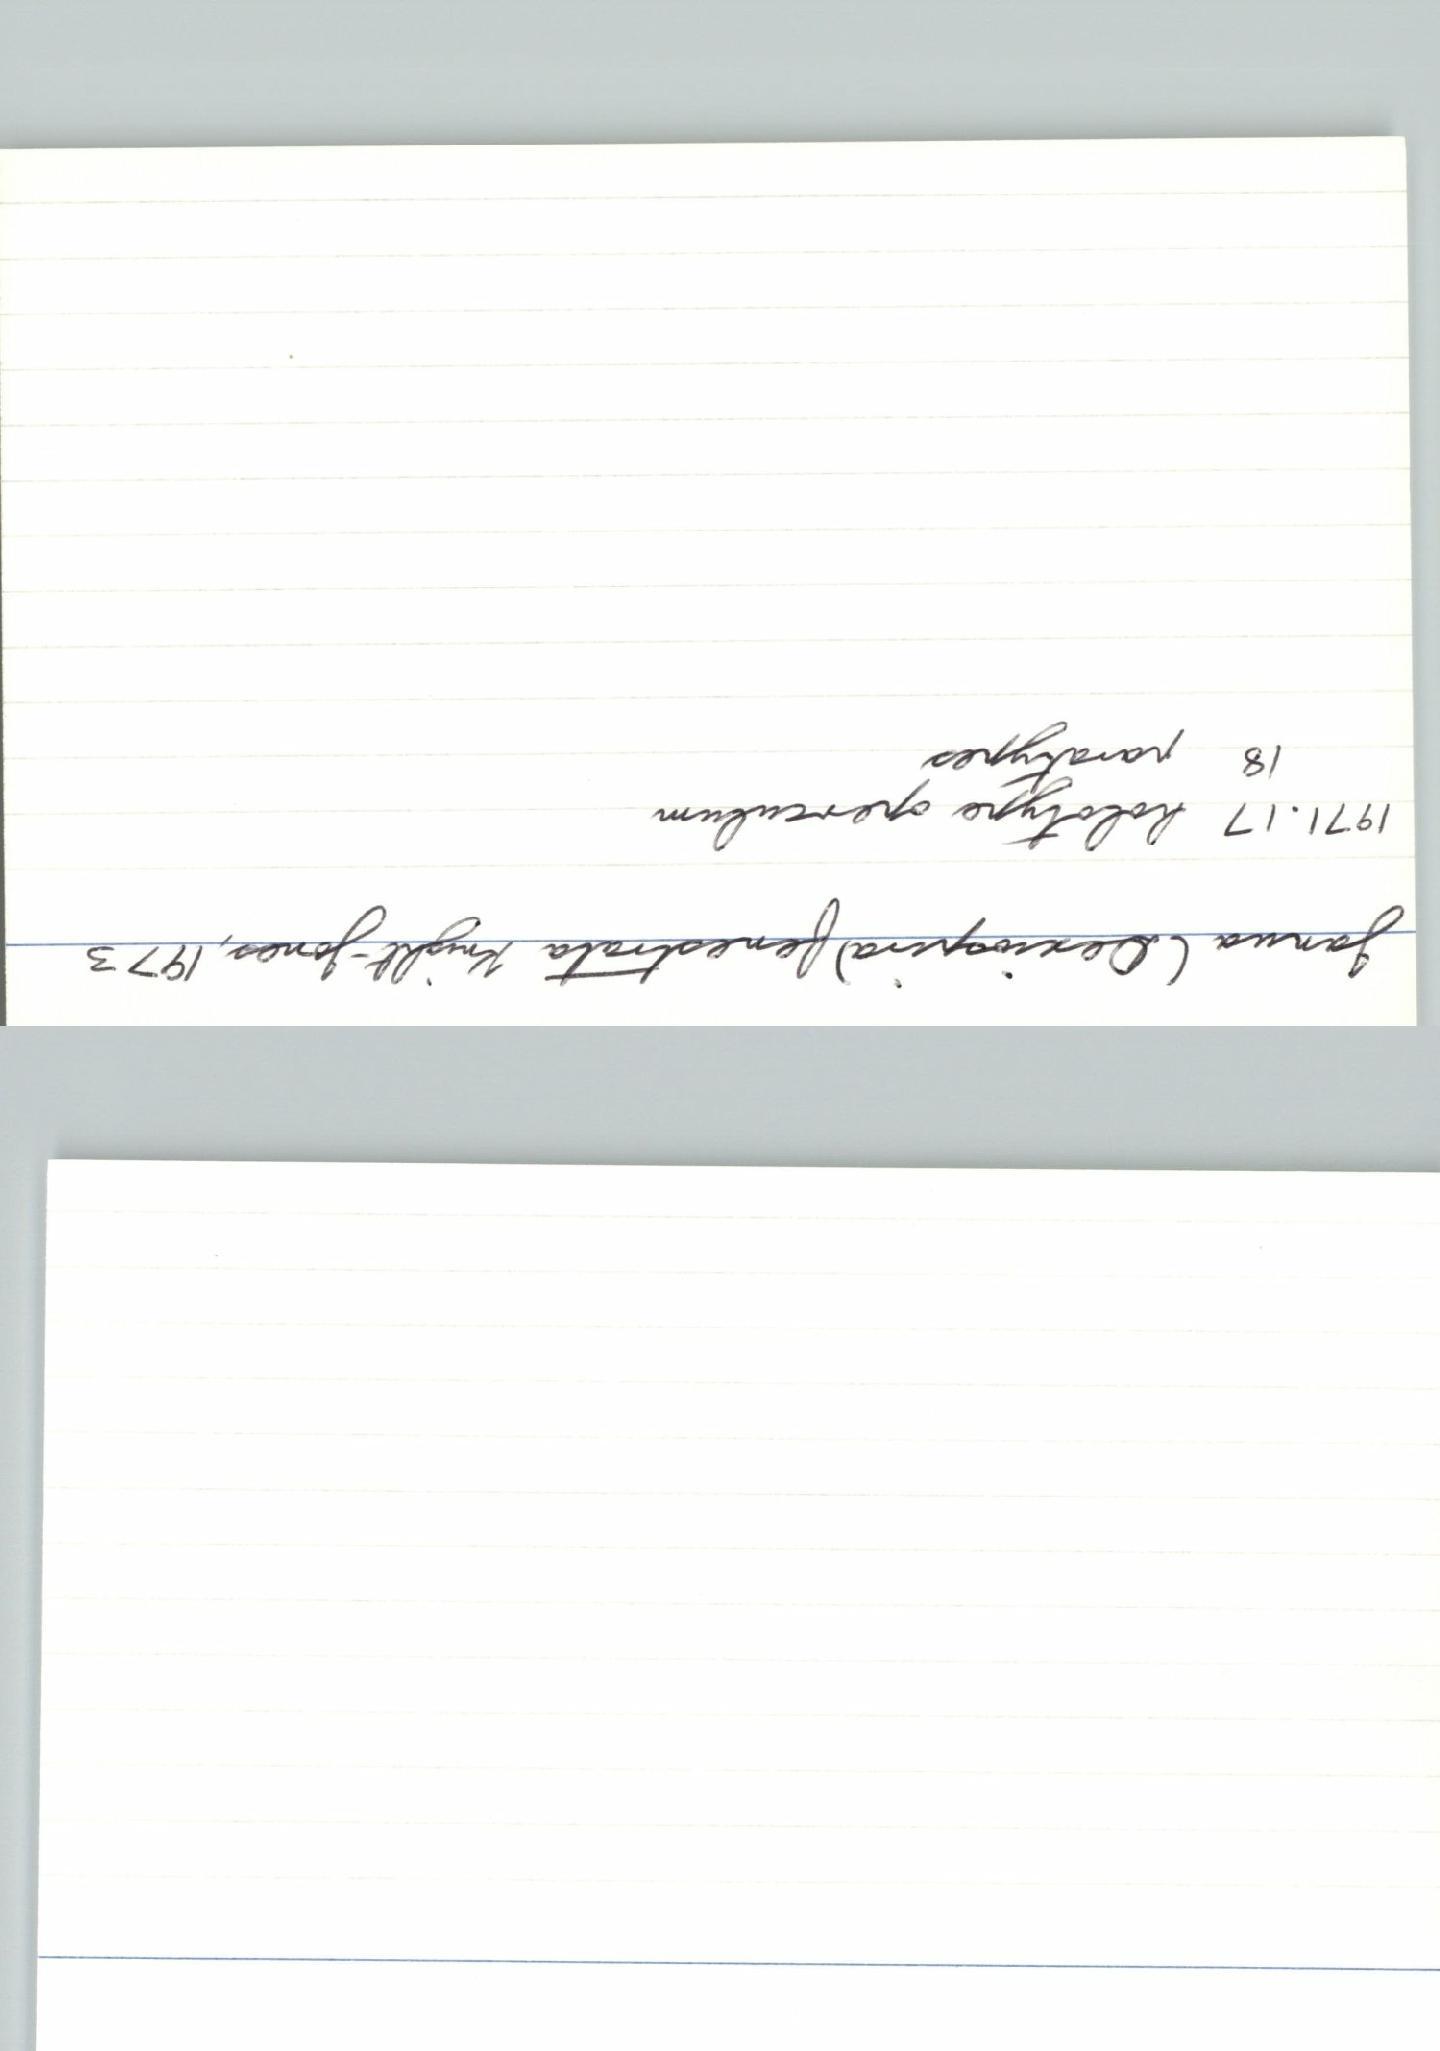 Janua (Dexiospira) fenestrata Knight-Jones, 1973
1971.17 holotype operculum
18 paratypes